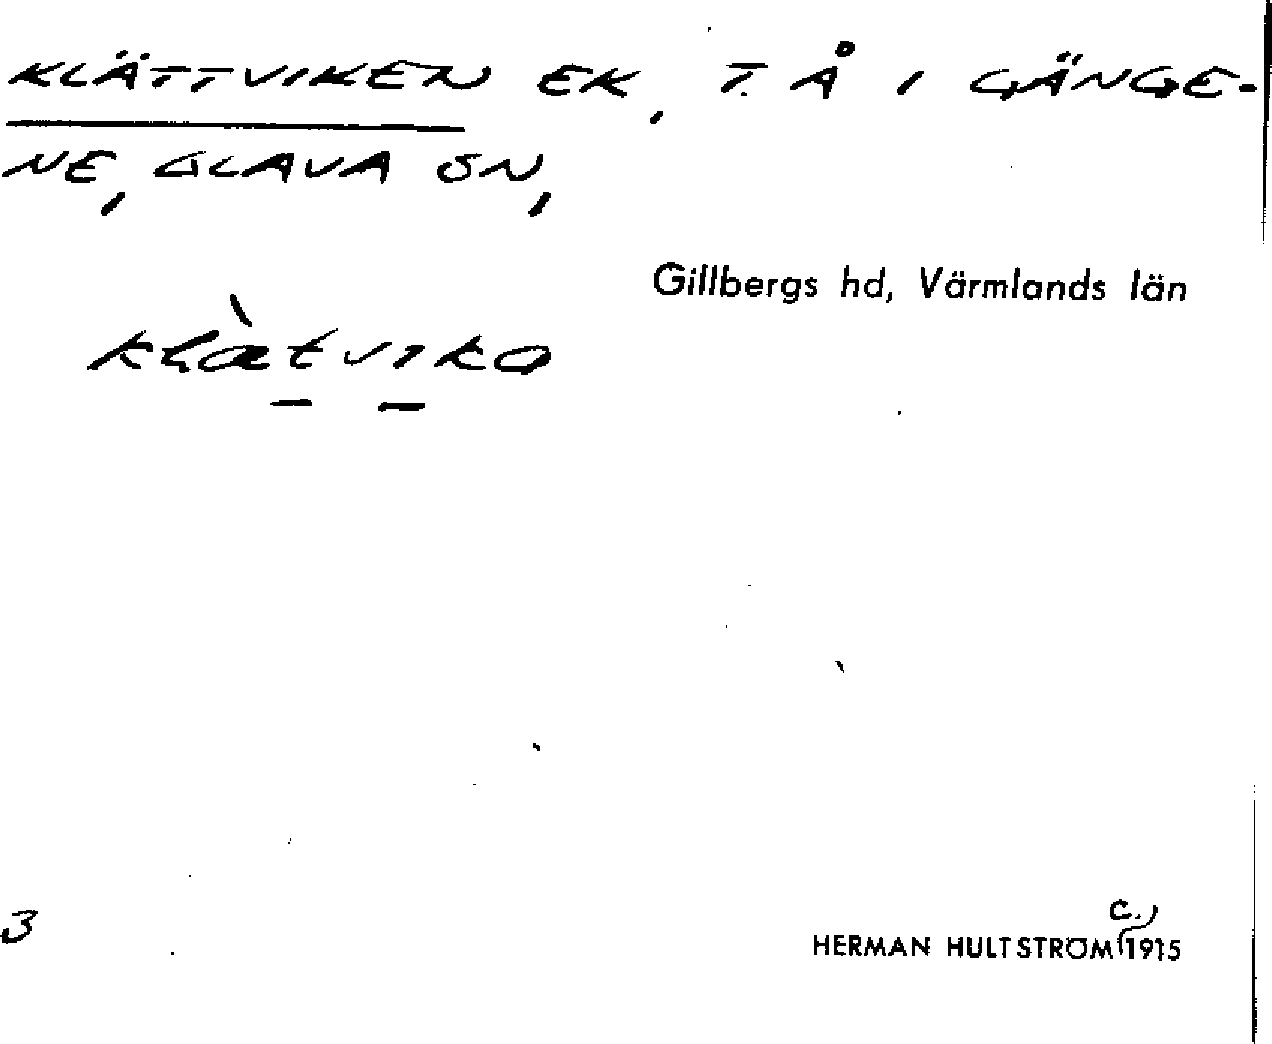 KLÄTTVIKEN EK, T. Å I GÄNGE-
NE, GLAVA SN,
Gillbergs hd, Värmlands län
klæ̀tvika
3
c.,
HERMAN HULTSTRÖM 1915